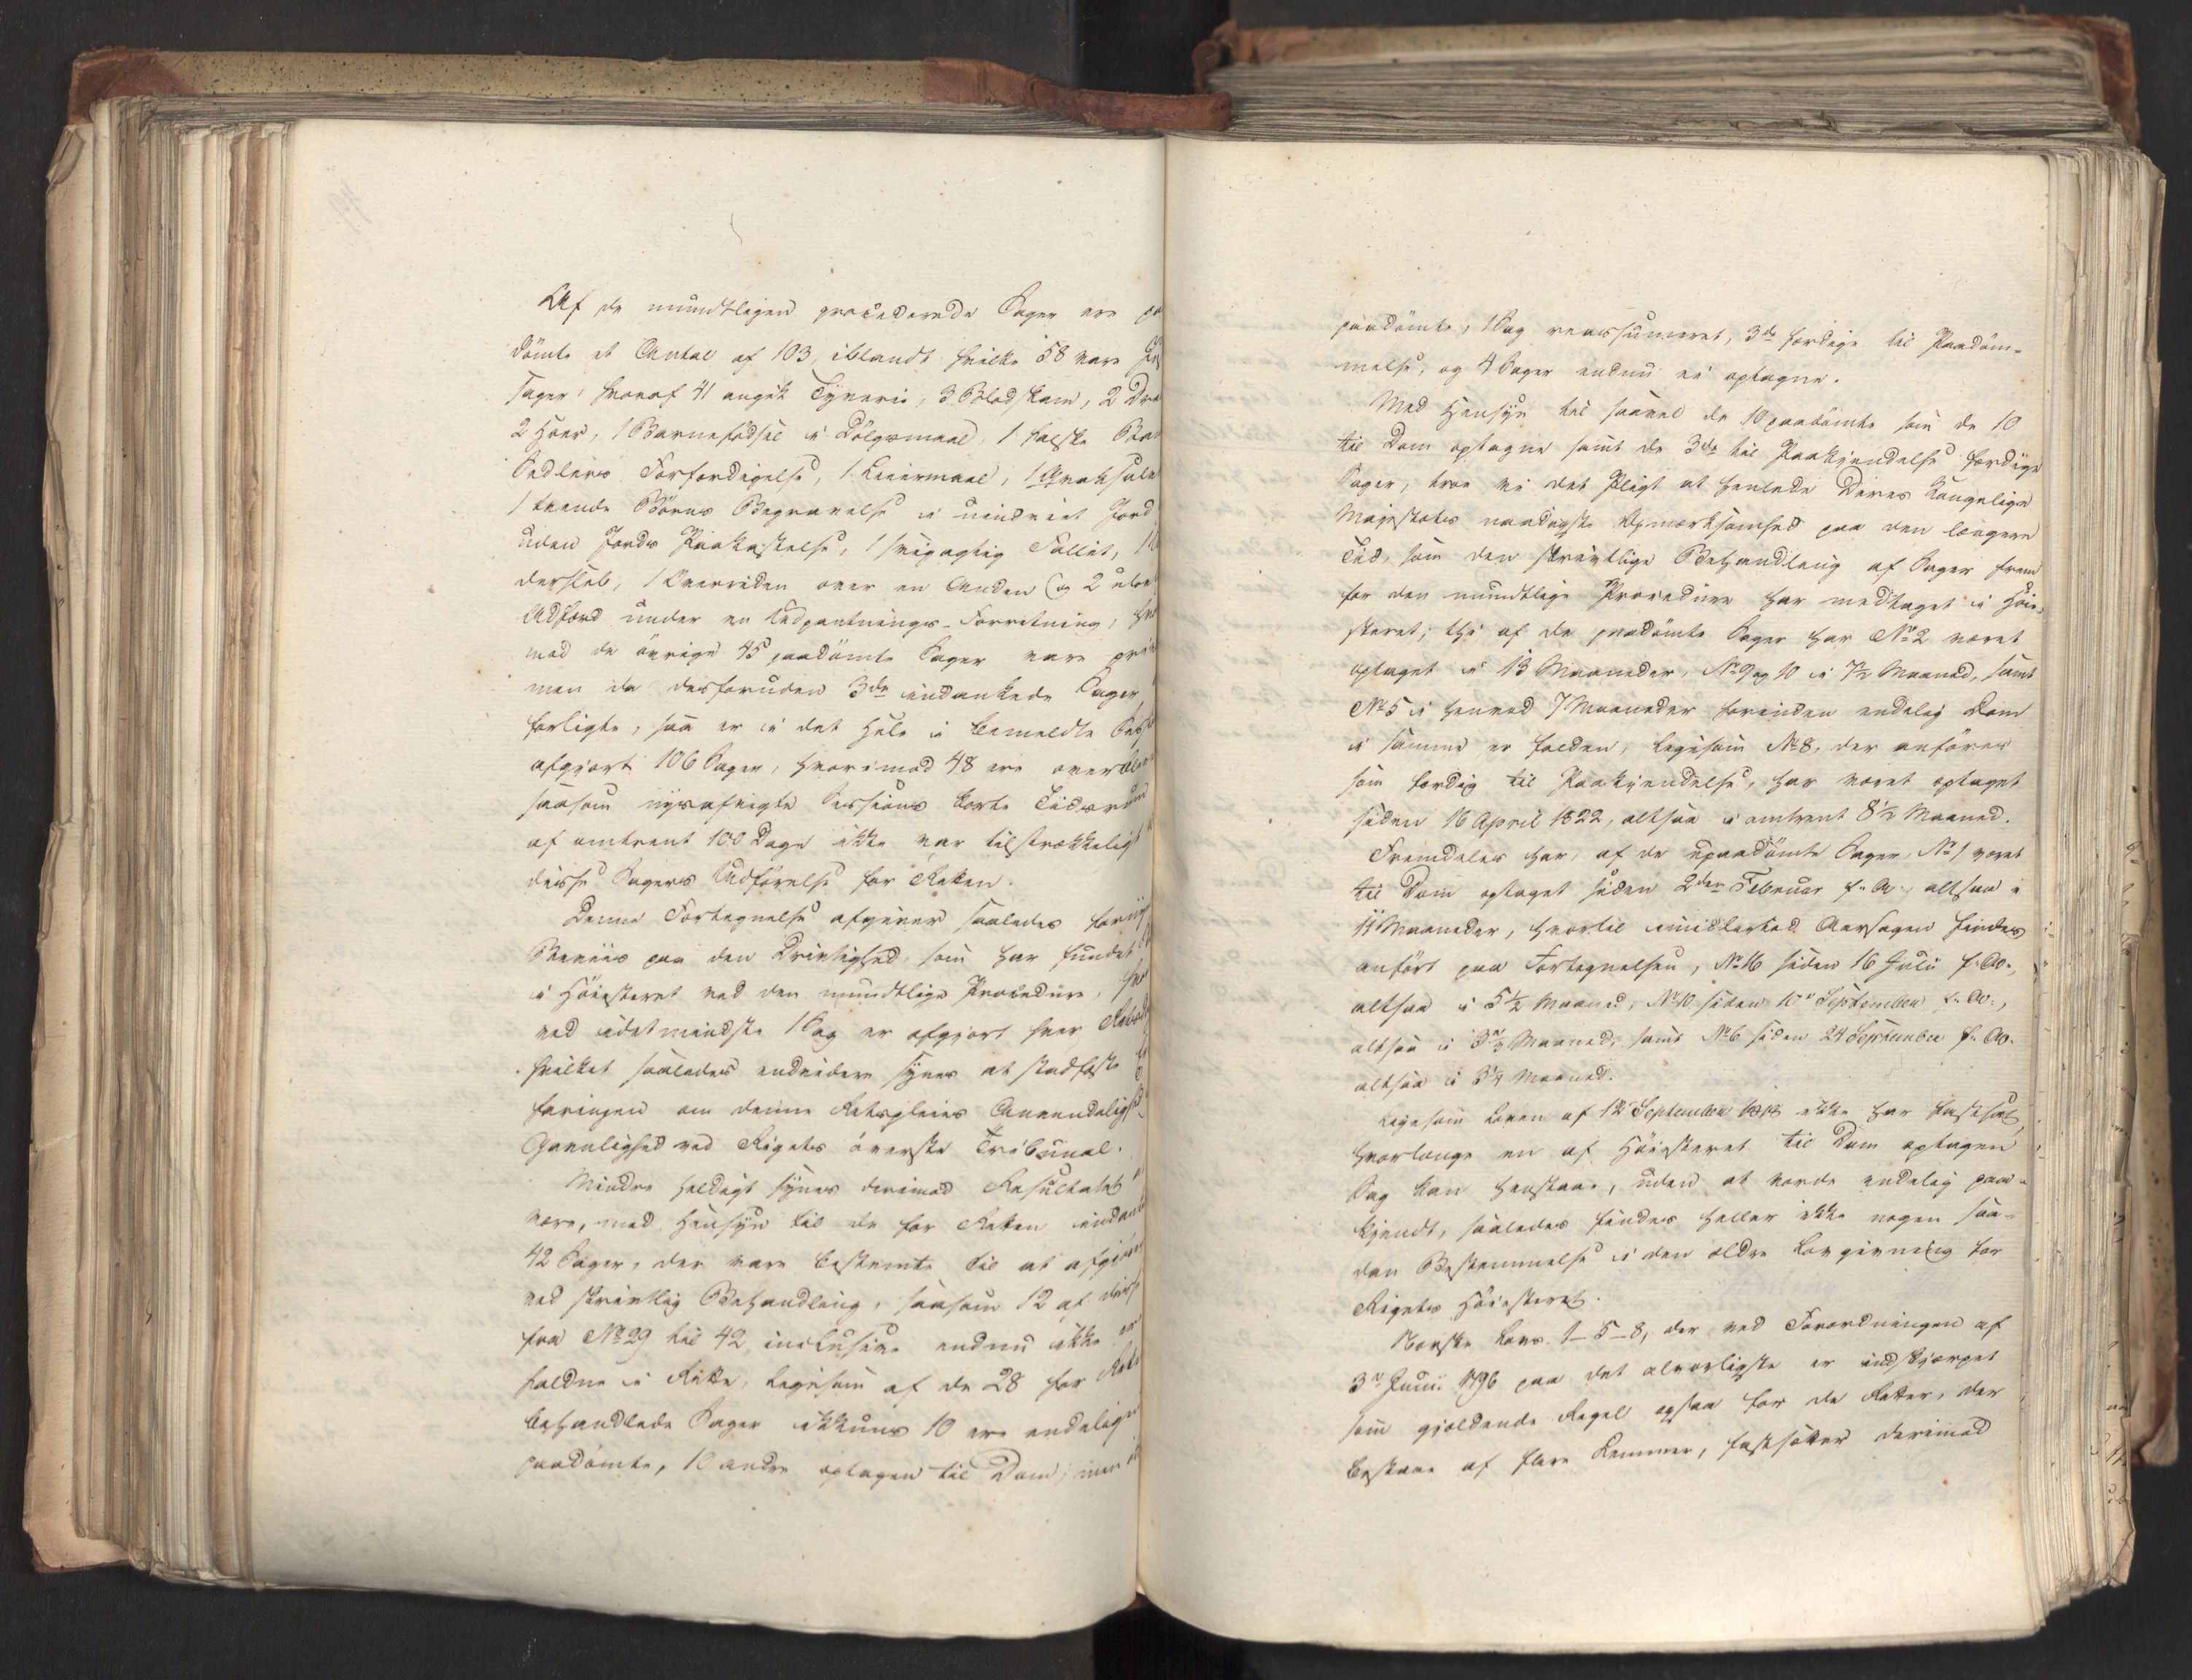 Af de mundtligen procederede Sager ere paa
dömte et Antal af 103, iblandt hvilke 58 vare
sager: hvoraf 41 angik Tyverie, 3 Blodskam, 2
2 Hoer, 1 Barnefödsel i Dölgsmaal, 1 falske
Sedlers Forfærdigelse, 1 Leiermaal, 1
1 tvende Börns Begravelse i uindviet Jord
uden Jords Paakastelse, 1 svigagtig Fallit,
1 Overriden over en Anden og 2
Adfærd under en Udpantnings-Forretning;
mod de övrige 45 paadömte Sager vare
men da desforuden 3de indankede Sager
forligte, saa er i det Hele i bemeldte
afgjort 106 Sager, hvorimod 48 ere
saasom nysafvigte Sessions korte Tidsrum
af omtrent 100 Dage ikke var tilstrækkeligt
disse Sagers Udförelse for Retten.
Denne Fortegnelse afgiver saaledes
Beviis paa den Drivtighed, som har fundet
i Höiesteret ved den mundtlige Procedure,
ved idetmindste 1 Sag er afgjort hver
hvilket saaledes endvidere synes at stadfæste
faringen om denne Retspleies Anvendelighed
Gavnlighed ved Rigets överste Tribunal.
Mindre heldigt synes derimod Resultatet
være, med Hensyn til de for Retten
42 Sager, der vare bestemte til at afgjöres
ved skrivtlig Behandling, saasom 12 af disse
fra No 29 til 42 inclusive endnu ikke ere
faldne i Rette, ligesom af de 28 for
behandlede Sager ikkuns 10 ere endeligen
paadömte, 10 andre optagen til Dom, men
paadömte, 1 Sag reassumeret, 3de færdige til Paadöm-
melse, og 4 Sager endnu ei optagne.
Med Hensyn til saavel de 10 paadömte som de 10
til Dom optagne samt de 3de til Paakjendelse færdige
Sager, troe vi det Pligt at henlede Deres Kongelige
Majestæts naadigste Opmærksomhed paa den længere
Tid, som den skrivtlige Behandling af Sager frem
for den mundtlige Procedure har medtaget i Höie-
steret; thi af de paadömte Sager har No 2 været
optaget i 13 Maaneder, No 9 og 10 i 7½ Maaned, samt
No 5 i henved 7 Maaneder forinden endelig Dom
i samme er falden, ligesom No 8, der anföres
som færdig til Paakjendelse, har været optaget
siden 16 April 1822, altsaa i omtrent 8½ Maaned.
Fremdeles har, af de upaadömte Sager, No 1 været
til Dom optaget siden 2den Februar f. A., altsaa i
11 Maaneder, hvortil imidlertid Aarsagen findes
anfört paa Fortegnelsen, No 16 siden 16 Julii f. A.,
altsaa i 5½ Maaned, No 10 siden 10 September f. A.,
altsaa i Maaned, samt No 6 siden 24 September f. A.
altsaa i 3¼ Maaned.
Ligesom Loven af 12 September 1818 ikke har fastsat,
hvorlænge en af Höiesteret til Dom optagen
Sag kan henstaae, uden at vorde endelig paa-
kjendt, saaledes findes heller ikke nogen saa-
dan Bestemmelse i den ældre Lovgivning for
Rigets Höiesteret.
Norske Lovs 1-5-8, der ved Forordningen af
3 Junii 1796 paa det alvorligste er indskjærpet
som gjældende Regel ogsaa for de Retter, der
bestaae af flere Lemmer, fastsætter derimod